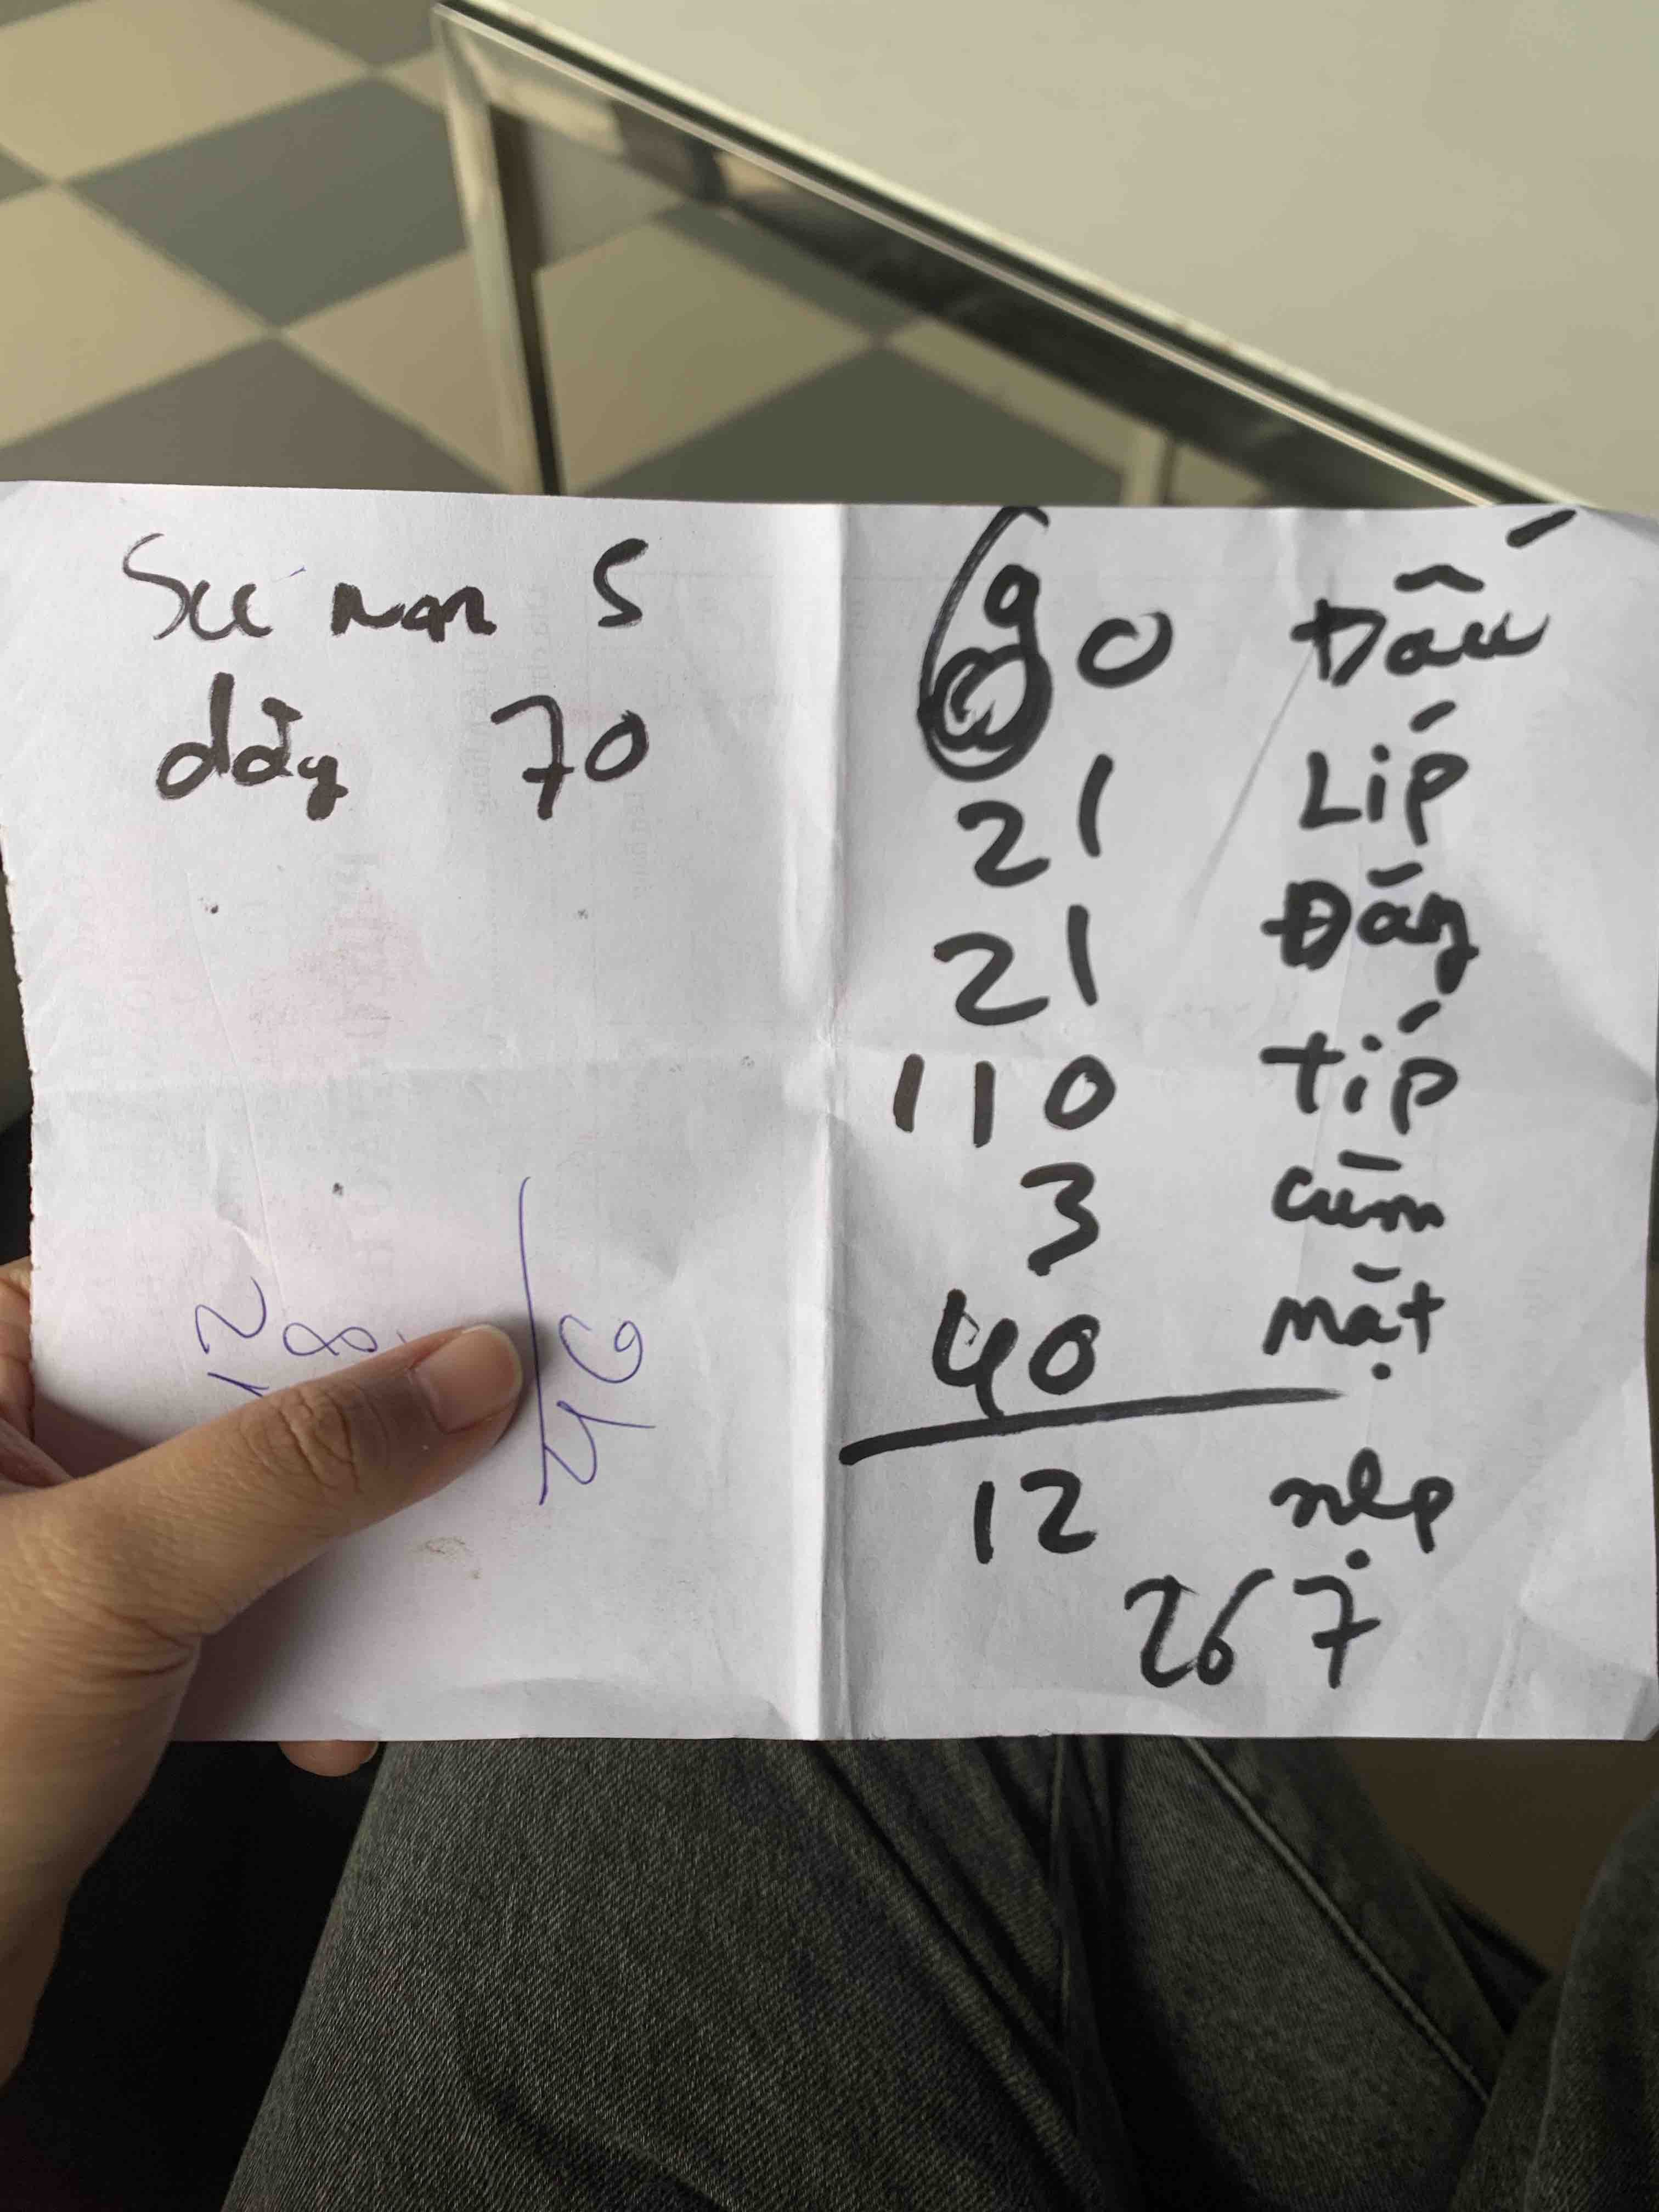 Sú non 5
dây 70
90 Đấu
21 Líp
21 Đáy
110 típ
3 cùm
40 mặt
12 nẹp
267
2
8
46